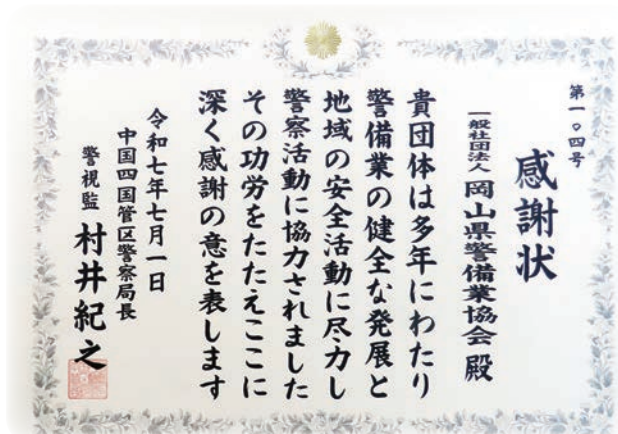 第一〇四号
感謝状
一般社団法人 岡山県警備業協会 殿
貴団体は多年にわたり
警備業の健全な発展と
地域の安全活動に尽力し
警察活動に協力されました
その功労をたたえここに
深く感謝の意を表します
令和七年七月一日
中国四国管区警察局長
警視監 村井紀之